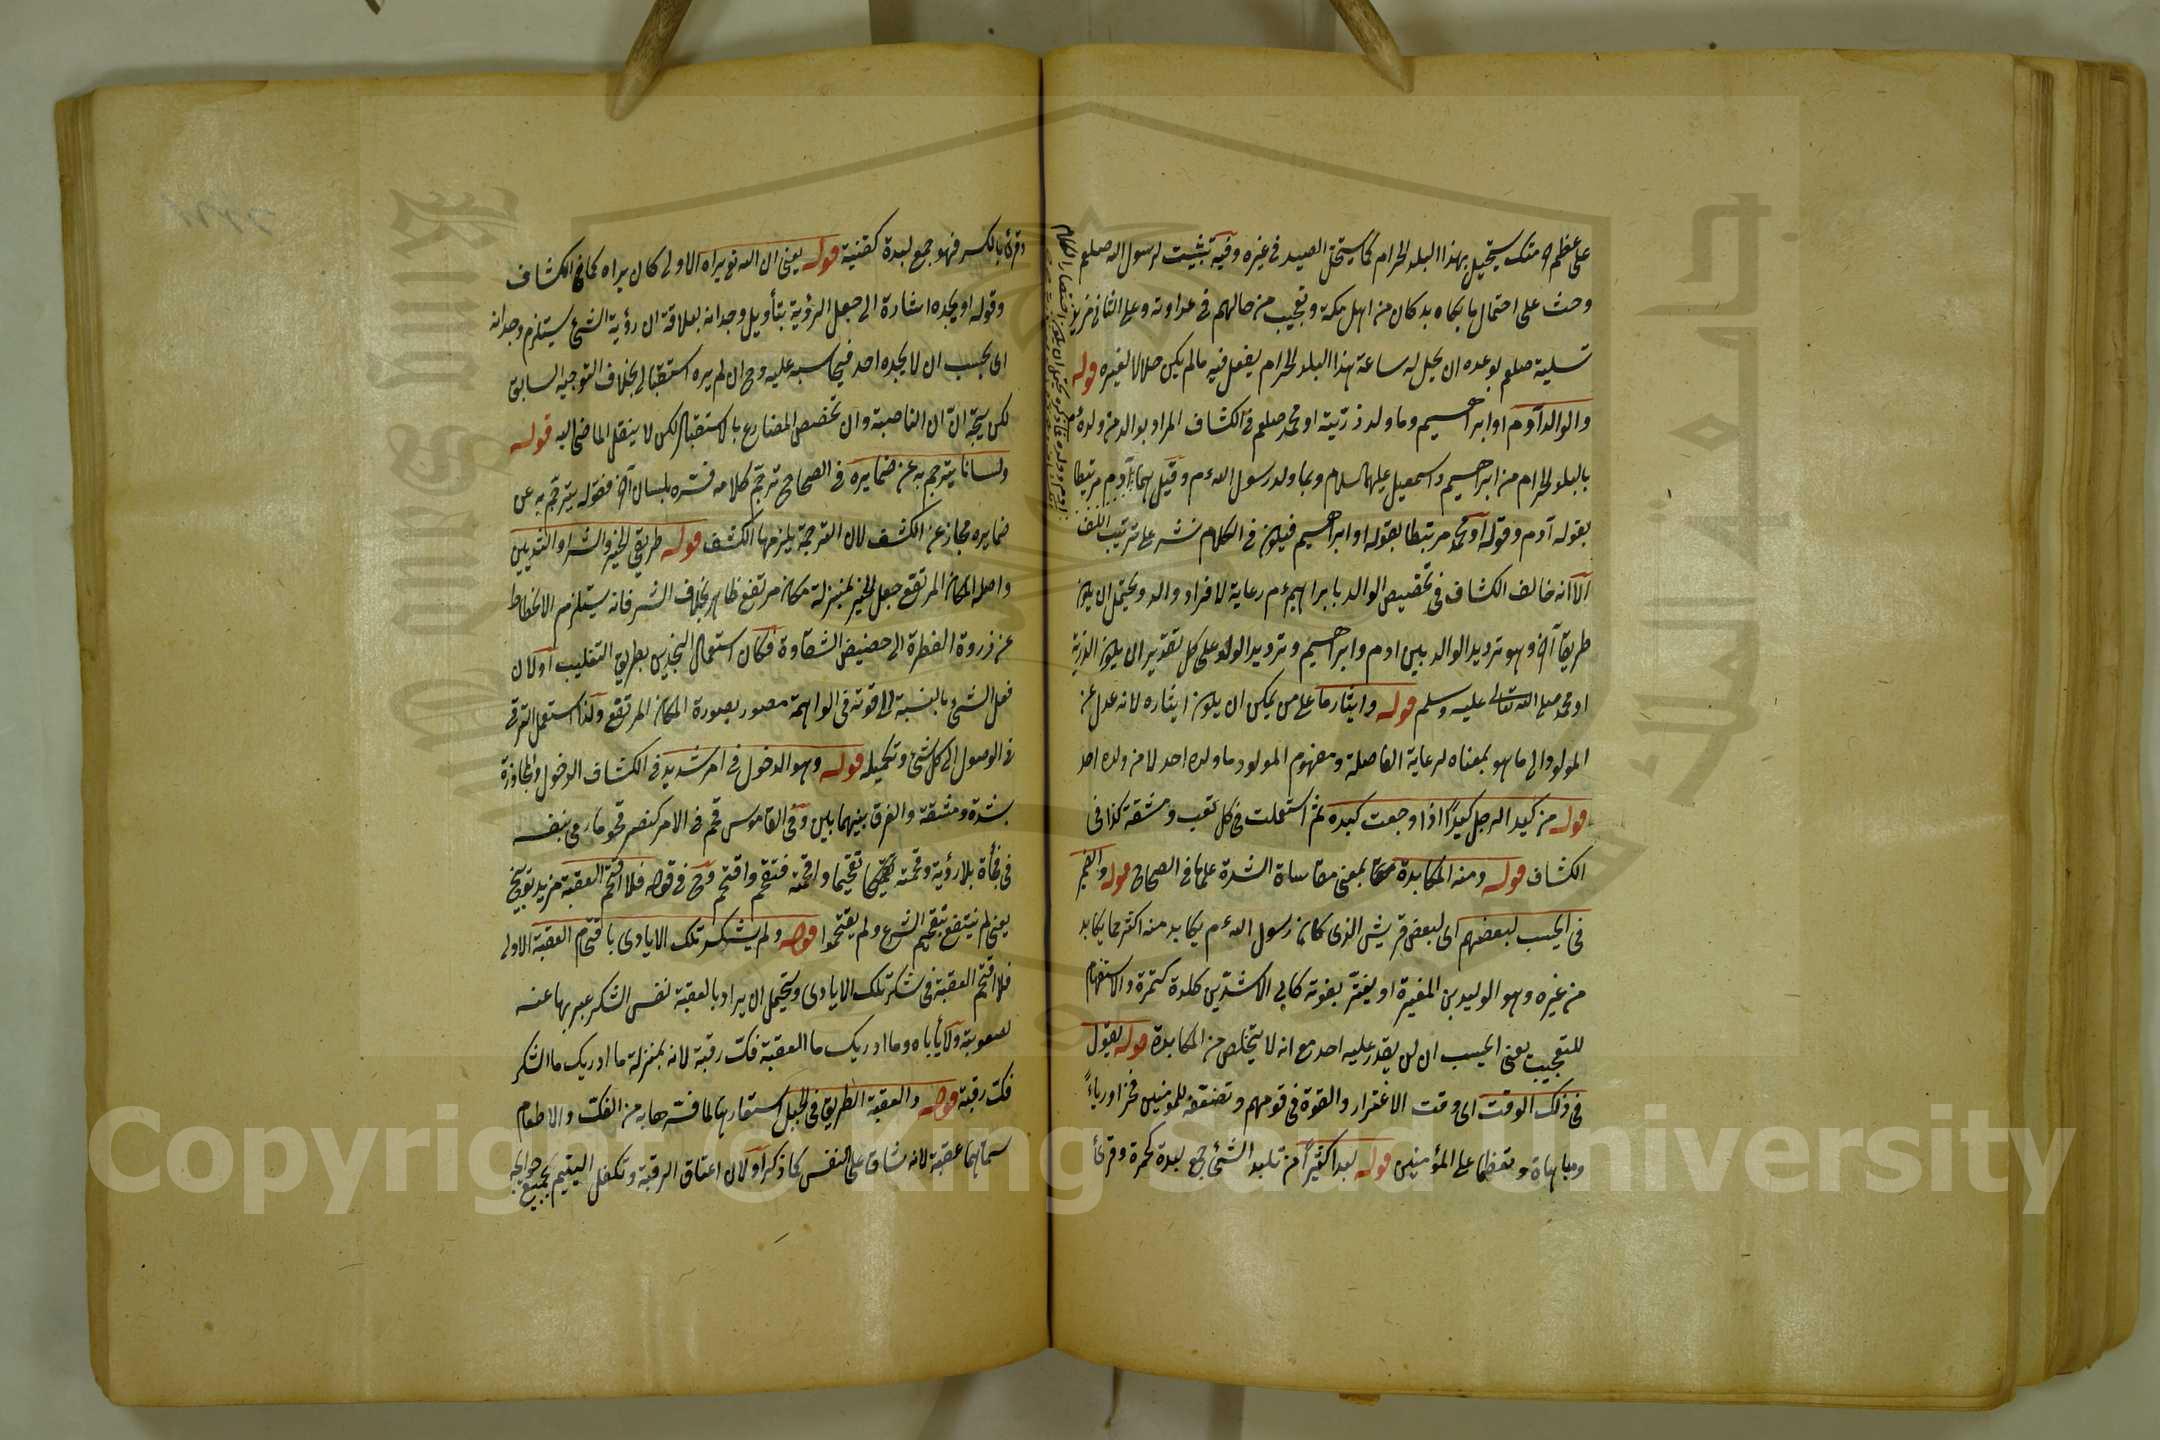 على عظم حرمتك يستحيل بهذا البلد الحرام كما يستحل الصيد في غيره وفيه تثبيت لرسول الله صلعم
وحث على احتمال ما يكابد كان من اهل مكة وتعجيب من حالهم في عداوته وعلى الثاني
تسلية صلعم بوعده ان يحل له ساعة بهذا البلد الحرام يفعل فيه ما لم يكن حلالا لغيره قوله
والوالد آدم او ابراهيم وما ولد ذريته او محمد صلعم في الكشاف المراد بوالد من ولده
بالبلد الحرام من ابراهيم واسمعيل عليهما السلام وبما ولد رسول الله م وقيل هما آدم مرتبطا
بقوله آدم وقوله او محمد مرتبطا بقوله او ابراهيم فيكون في الكلام نشر على ترتيب اللف
الا انه خالف الكشاف في تخصيص الوالد بابراهيم م رعاية لافراد والد ويحتمل ان يكون
طريقا آخر وهو ترديد الوالد بين ادم وابراهيم وترديد الولد على كل تقدير ان يكون الذرية
او محمد صلى الله تعالى عليه وسلم قوله وايثار ما على من يمكن ان يكون ايثاره لانه عدل عن
المولود الى ما هو بمعناه لرعاية الفاصلة ومفهوم المولود ما ولده احد لا من ولده احد
قوله من كبد الرجل كبدا اذا وجعت كبده ثم استعملت في كل تعب ومشقة كذا في
الكشاف قوله ومنه المكابدة بمعنى مقاساة الشدة على ما في الصحاح قوله والضمير
في ايحسب لبعضهم اى لبعض قريش الذى كان رسول الله م يكابد منه اكثر مما يكابد
من غيره وهو الوليد بن المغيرة او يغتر بقوته كابي الاشدين كلدة كتمرة والاستفهام
للتعجيب يعنى ايحسب ان لن يقدر عليه احد مع انه لا يتخلص من المكابدة قوله يقول
في ذلك الوقت اى وقت الاغترار والقوة في قومهم وتضعفه للمؤمنين فخرا ورياءً
ومباهاة وتعظما على المؤمنين قوله لبدا كثيرا من تلبد الشئ جمع لبدة كحمرة وقرئ
وقرئ بالكسر فهو جمع لبدة كقنية قوله يعنى ان الله تع يراه الاولى كان يراه كما في الكشاف
وقوله او يجده اشارة الى جعل الرؤية بتأويل وجدانه بعلاقة ان رؤية الشئ يستلزم وجدانه
اى يحسب ان لا يجده احد فيحاسبه عليه وح ان لم يره استقبالى بخلاف التوجيه السابق
لكن يتجه ان ان الناصبة وان تخصيص المضارع بالاستقبال لكن لا ينقل الماضى اليه قوله
ولسانا يترجم به عن ضمايره في الصحاح ترجم كلامه فسره بلسان آخر فقوله يترجم به عن
ضمايره مجاز عن الكشف لان الترجمة يلزمها الكشف قوله طريقي الخير والشر او الثديين
واصله المكان المرتفع جعل الخير بمنزلة مكان مرتفع ظاهر بخلاف الشر فانه يستلزم الانحطاط
عن ذروة الفطرة الى حضيض الشقاوة فكان استعمال النجدين بطريق التغليب او لان
فعل الشئ بالنسبة الى قوته في الواهمة مصور بصورة المكان المرتفع ولذا استعمل الترقى
في الوصول الى كل شئ وتكميله قوله وهو الدخول في امر شديد في الكشاف الدخول والمجاوزة
بشدة ومشقة والفرق بينهما بين وفي القاموس قحم في الامر كنصر قحوما رمى بنفسه
في فجأة بلا رؤية وقحمته تقحيما واقحمته فتقحم واقتحم وح في قوله فلا اقتحم العقبة مزيد توبيخ
يعنى لم ينتفع بتقحيم الشرع ولم يقتحموا قوله ولم يشكر تلك الايادى باقتحام العقبة الاولى
فلا اقتحم العقبة في شكر تلك الايادى ويحتمل ان يراد بالعقبة نفس الشكر عبر بها عنه
لصعوبته ولا يأباه وما ادريك ما العقبة فك رقبة لانه بمنزلة ما ادريك ما الشكر
فك رقبة قوله والعقبة الطريق في الجبل استعارها لما فسرها به من الفك والاطعام
سماهما عقبة لانه شاق على النفس كما ذكر او لان اعتاق الرقبة وتكفل اليتيم بجميع حوايجه
Copyright © King Saud University